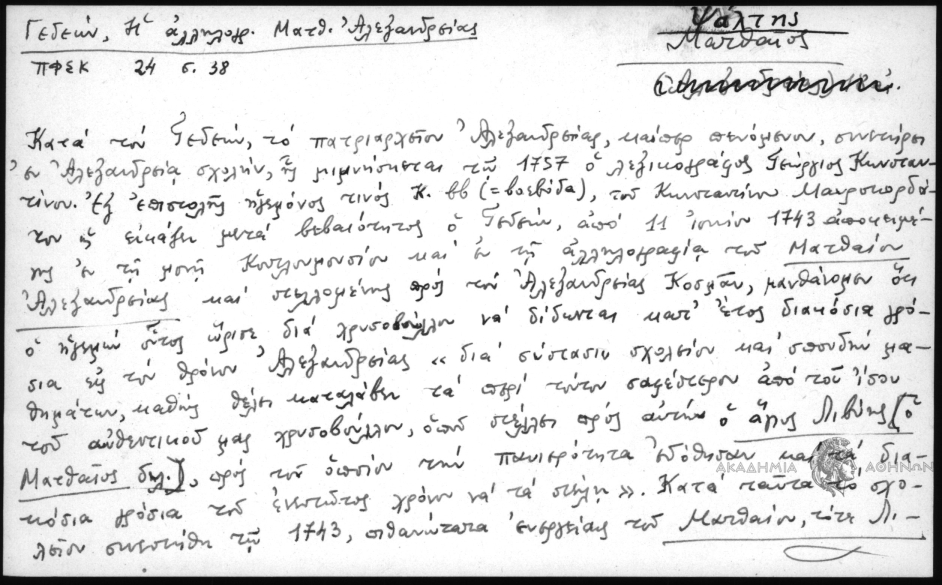 Γεδεών, Ἡ ἀλληλογρ. Ματθ. Ἀλεξανδρείας
Ψάλτης
Ματθαῖος
ΠΦΕΚ 24 σ. 38
Κατά τόν Γεδεών, τό πατριαρχεῖον Ἀλεξανδρείας, καίπερ πενόμενον, συνετήρει
ἐν Ἀλεξανδρείᾳ σχολήν, ἧς μιμνήσκεται τῷ 1757 ὁ λεξικογράφος Γεώργιος Κωνσταν-
τίνου. Ἐξ ἐπιστολῆς ἡγεμόνος τινός Κ. ββ (=βοεβόδα), τοῦ Κωνσταντίνου Μαυροκορδά-
του ὡς εἰκάζει μετά βεβαιότητος ὁ Γεδεών, ἀπό 11 Ἰουνίου 1743 ἀποκειμέ-
νης ἐν τῇ μονῇ Κουτλουμουσίου καί ἐν τῇ ἀλληλογραφίᾳ τοῦ Ματθαίου
Ἀλεξανδρείας καί στελλομένης πρός τόν Ἀλεξανδρείας Κοσμᾶν, μανθάνομεν ὅτι
ὁ ἡγεμών οὗτος ὥρισε διά χρυσοβούλλου νά δίδωνται κατ' ἔτος διακόσια γρό-
σια εἰς τόν θρόνον Ἀλεξανδρείας «διά σύστασιν σχολείου καί σπουδήν μα-
θημάτων, καθώς θέλει καταλάβει τά περί τούτου σαφέστερον ἀπό τοῦ ἴσου
τοῦ αὐθεντικοῦ μας χρυσοβούλλου, ὁποῦ στέλλει πρός αὐτήν ὁ ἅγιος Λιβύης [ὁ
Ματθαῖος δηλ.], πρός τόν ὁποῖον τήν πανιερότητα ἐδόθησαν καί τά δια-
κόσια γρόσια τοῦ ἐνεστῶτος χρόνου νά τά στείλῃ». Κατά ταῦτα τό σχο-
λεῖον συνεστήθη τῷ 1743, πιθανώτατα ἐνεργείαις τοῦ Ματθαίου, τότε Λι-
ΑΚΑΔΗΜΙΑ ΑΘΗΝΩΝ